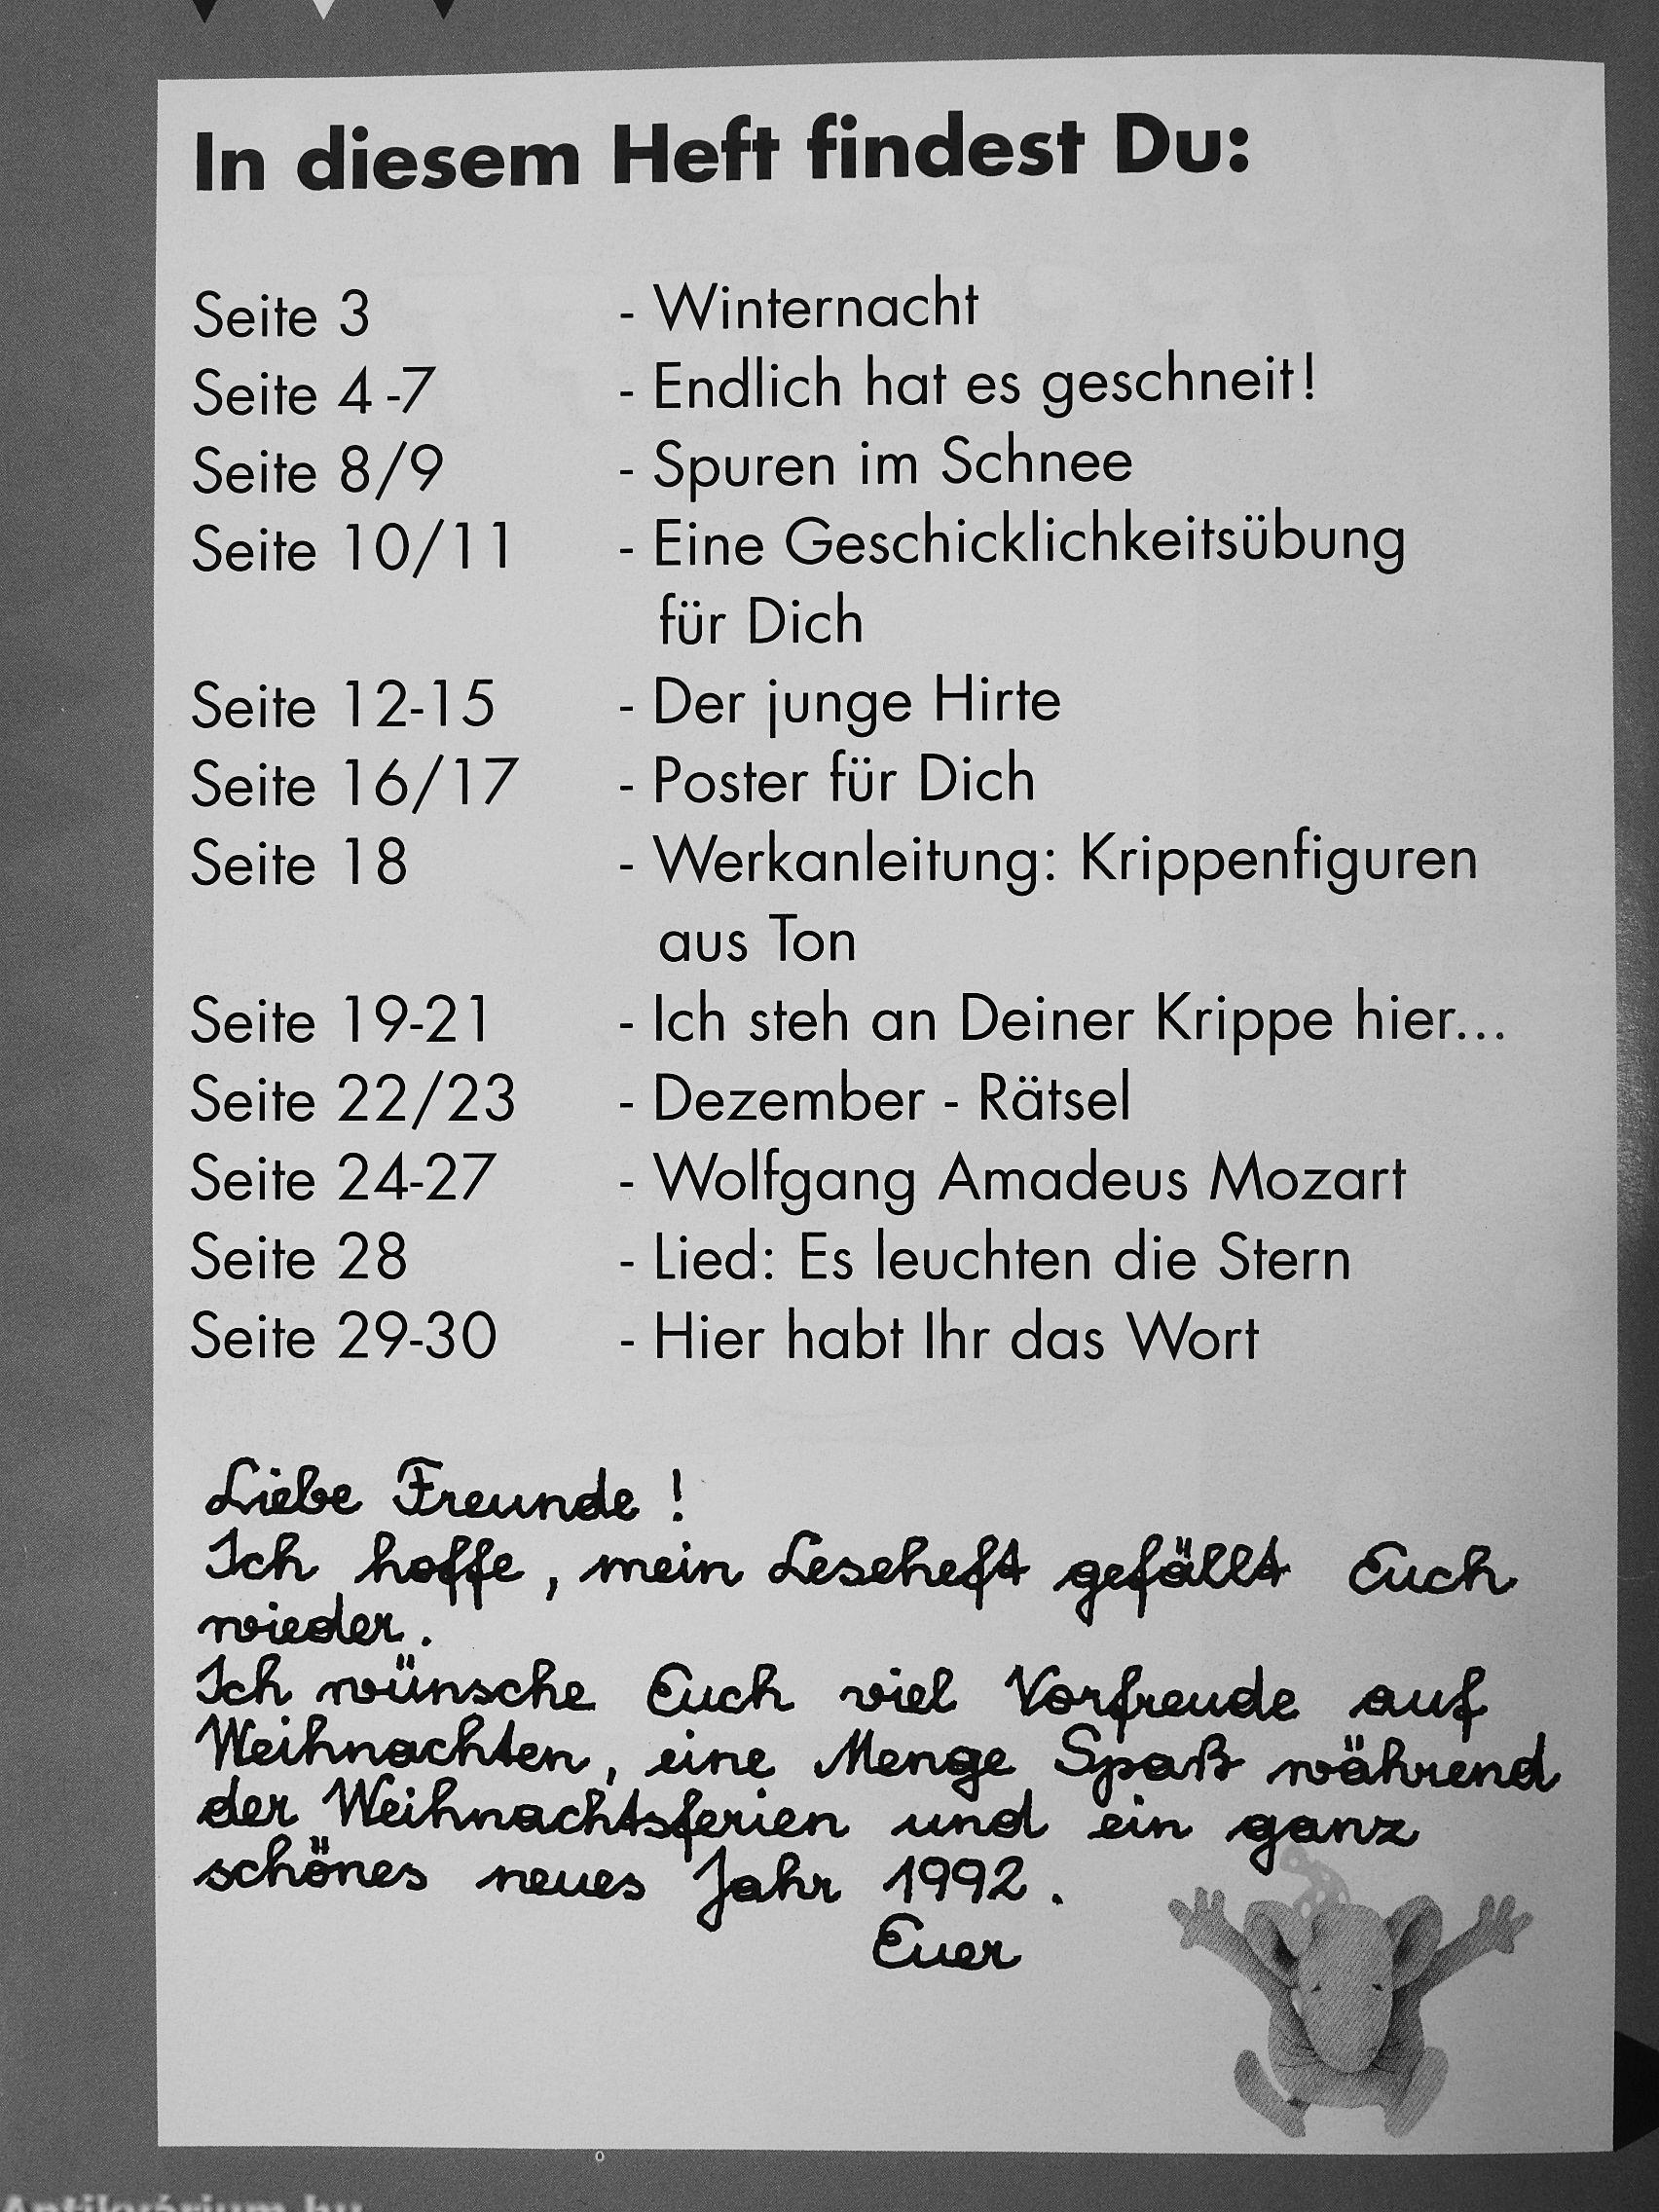 In diesem Heft findest Du:
Seite 3 - Winternacht
Seite 4-7 - Endlich hat es geschneit!
Seite 8/9 - Spuren im Schnee
Seite 10/11 - Eine Geschicklichkeitsübung
für Dich
Seite 12-15 - Der junge Hirte
Seite 16/17 - Poster für Dich
Seite 18 - Werkanleitung: Krippenfiguren
aus Ton
Seite 19-21 - Ich steh an Deiner Krippe hier...
Seite 22/23 - Dezember - Rätsel
Seite 24-27 - Wolfgang Amadeus Mozart
Seite 28 - Lied: Es leuchten die Stern
Seite 29-30 - Hier habt Ihr das Wort
Liebe Freunde !
Ich hoffe, mein Leseheft gefällt Euch
wieder.
Ich wünsche Euch viel Vorfreude auf
Weihnachten, eine Menge Spaß während
der Weihnachtsferien und ein ganz
schönes neues Jahr 1992.
Euer
Antikvárium.hu